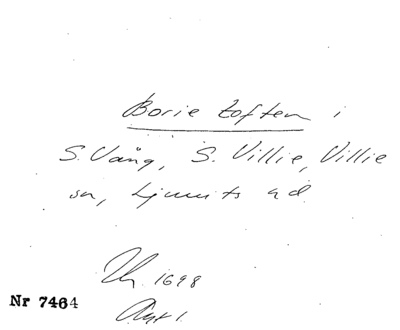 Borie toften i
S. Vång, S. Villie, Villie
sn, Ljunits hd
1698
Nr 7464
Akt 1